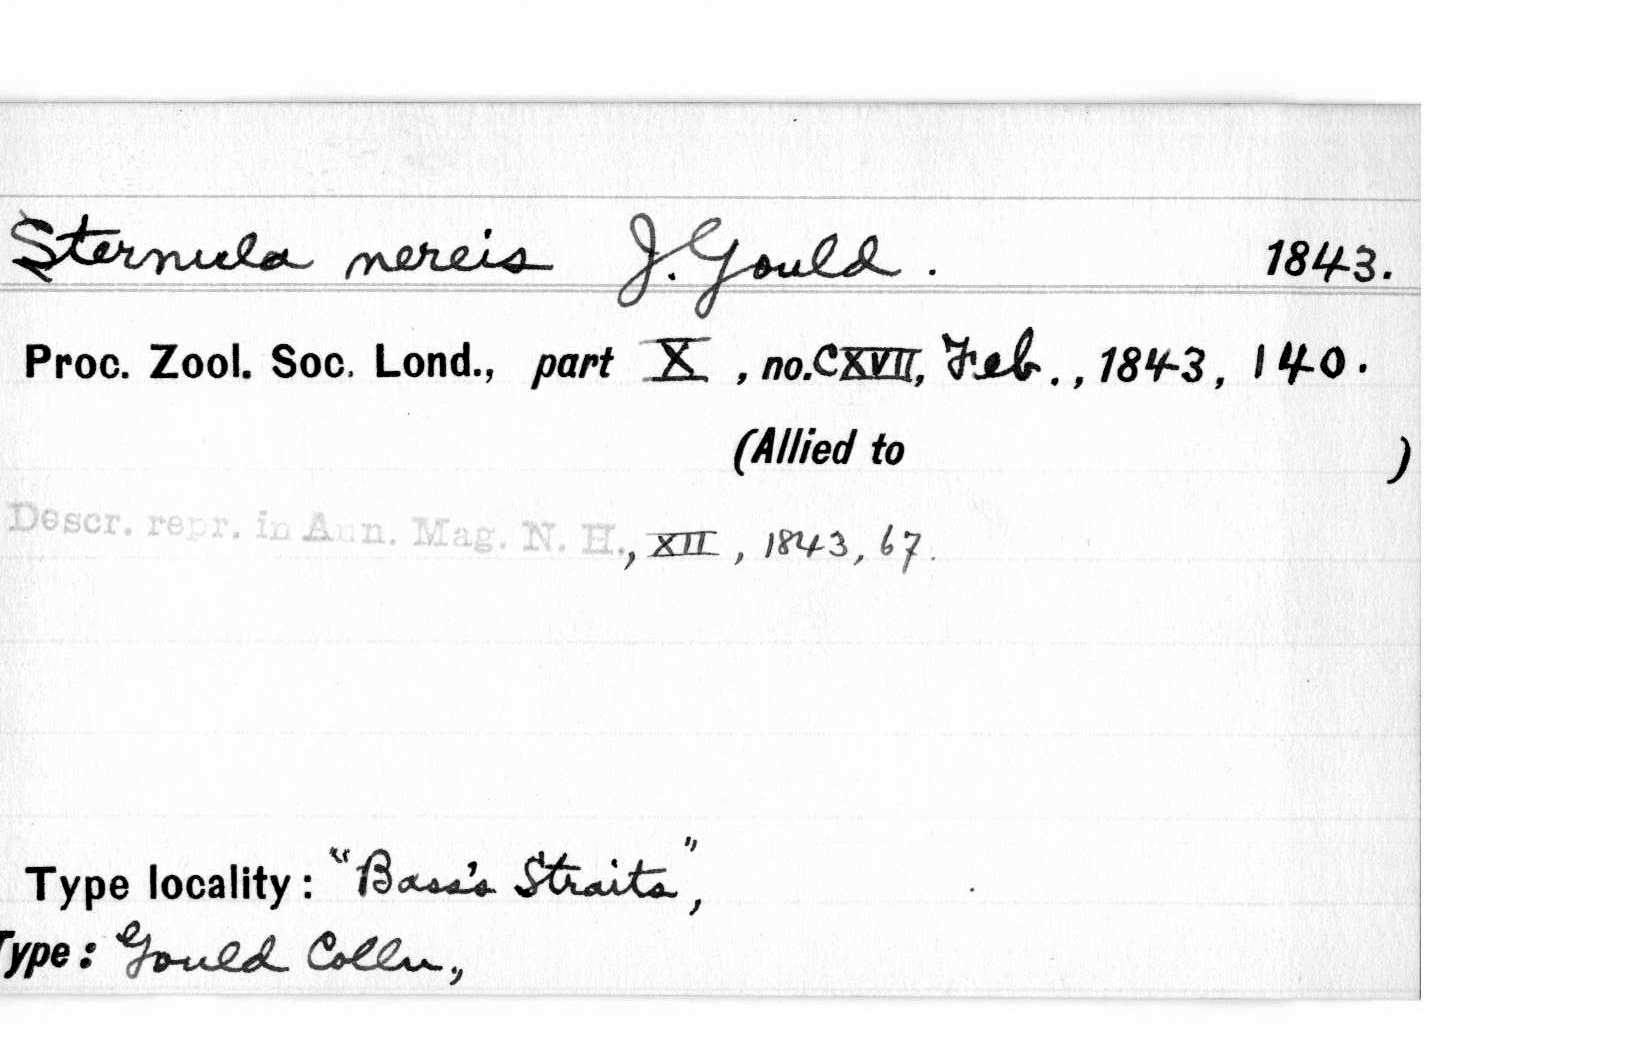 Sternula nereis J. Gould. 1843.
Proc. Zool. Soc. Lond., part X, no. CXVII, Feb., 1843, 140.
(Allied to )
Descr. repr. in Ann. Mag. N. H., XII, 1843, 67.
Type locality: "Bass's Straits",
Type: Gould Colln.,